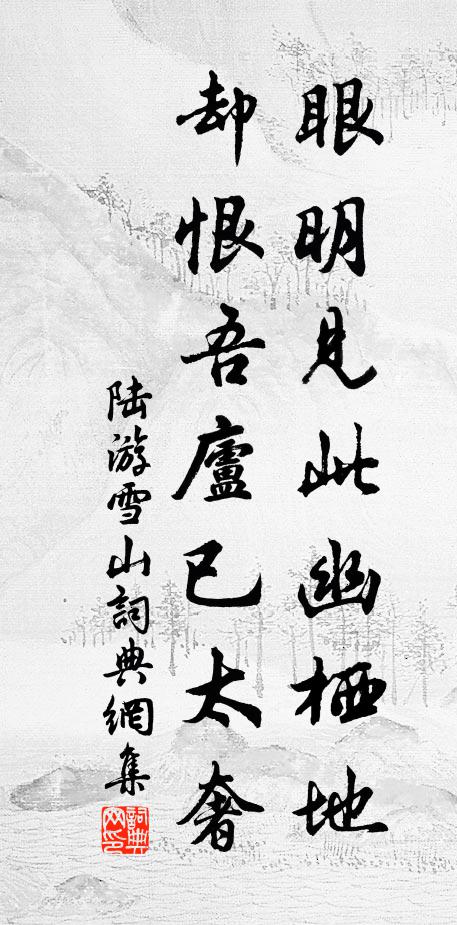 眼明見此幽栖地
却恨吾廬已太奢
陆游雪山詞典網集
詞典網印